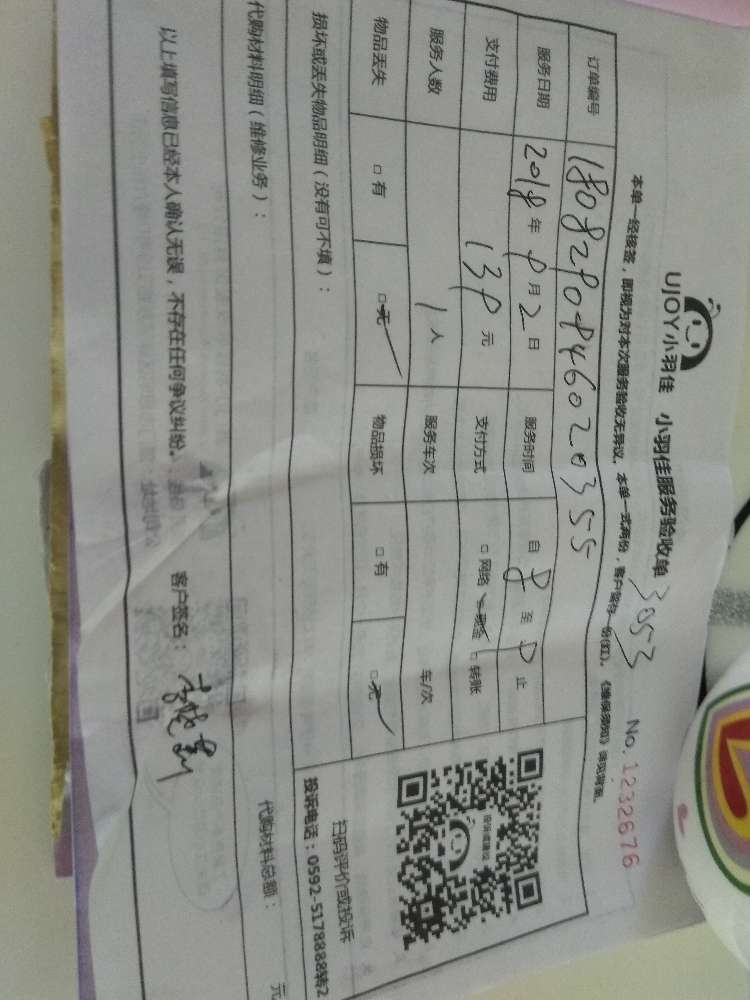 UJOY小羽佳 小羽佳服务验收单 3053 No. 1232676
本单一经核签，即视为对本次服务验收无异议，本单一式两份，客户留存一份(红)，《维保须知》详见背面。
订单编号
服务日期 2018 年 8 月 2 日 服务时间 自 8 至 止
支付费用 138 元 支付方式 □网络 □现金 □转账
服务人数 1 人 服务车次 车/次
物品丢失 □有 □无 物品损坏 □有 □无
损坏或丢失物品明细（没有可不填）：
扫码评价或投诉
投诉电话：0592-5178888转2
代购材料明细（维修业务）： 代购材料总额： 元
以上填写信息已经本人确认无误，不存在任何争议纠纷。 客户签名：